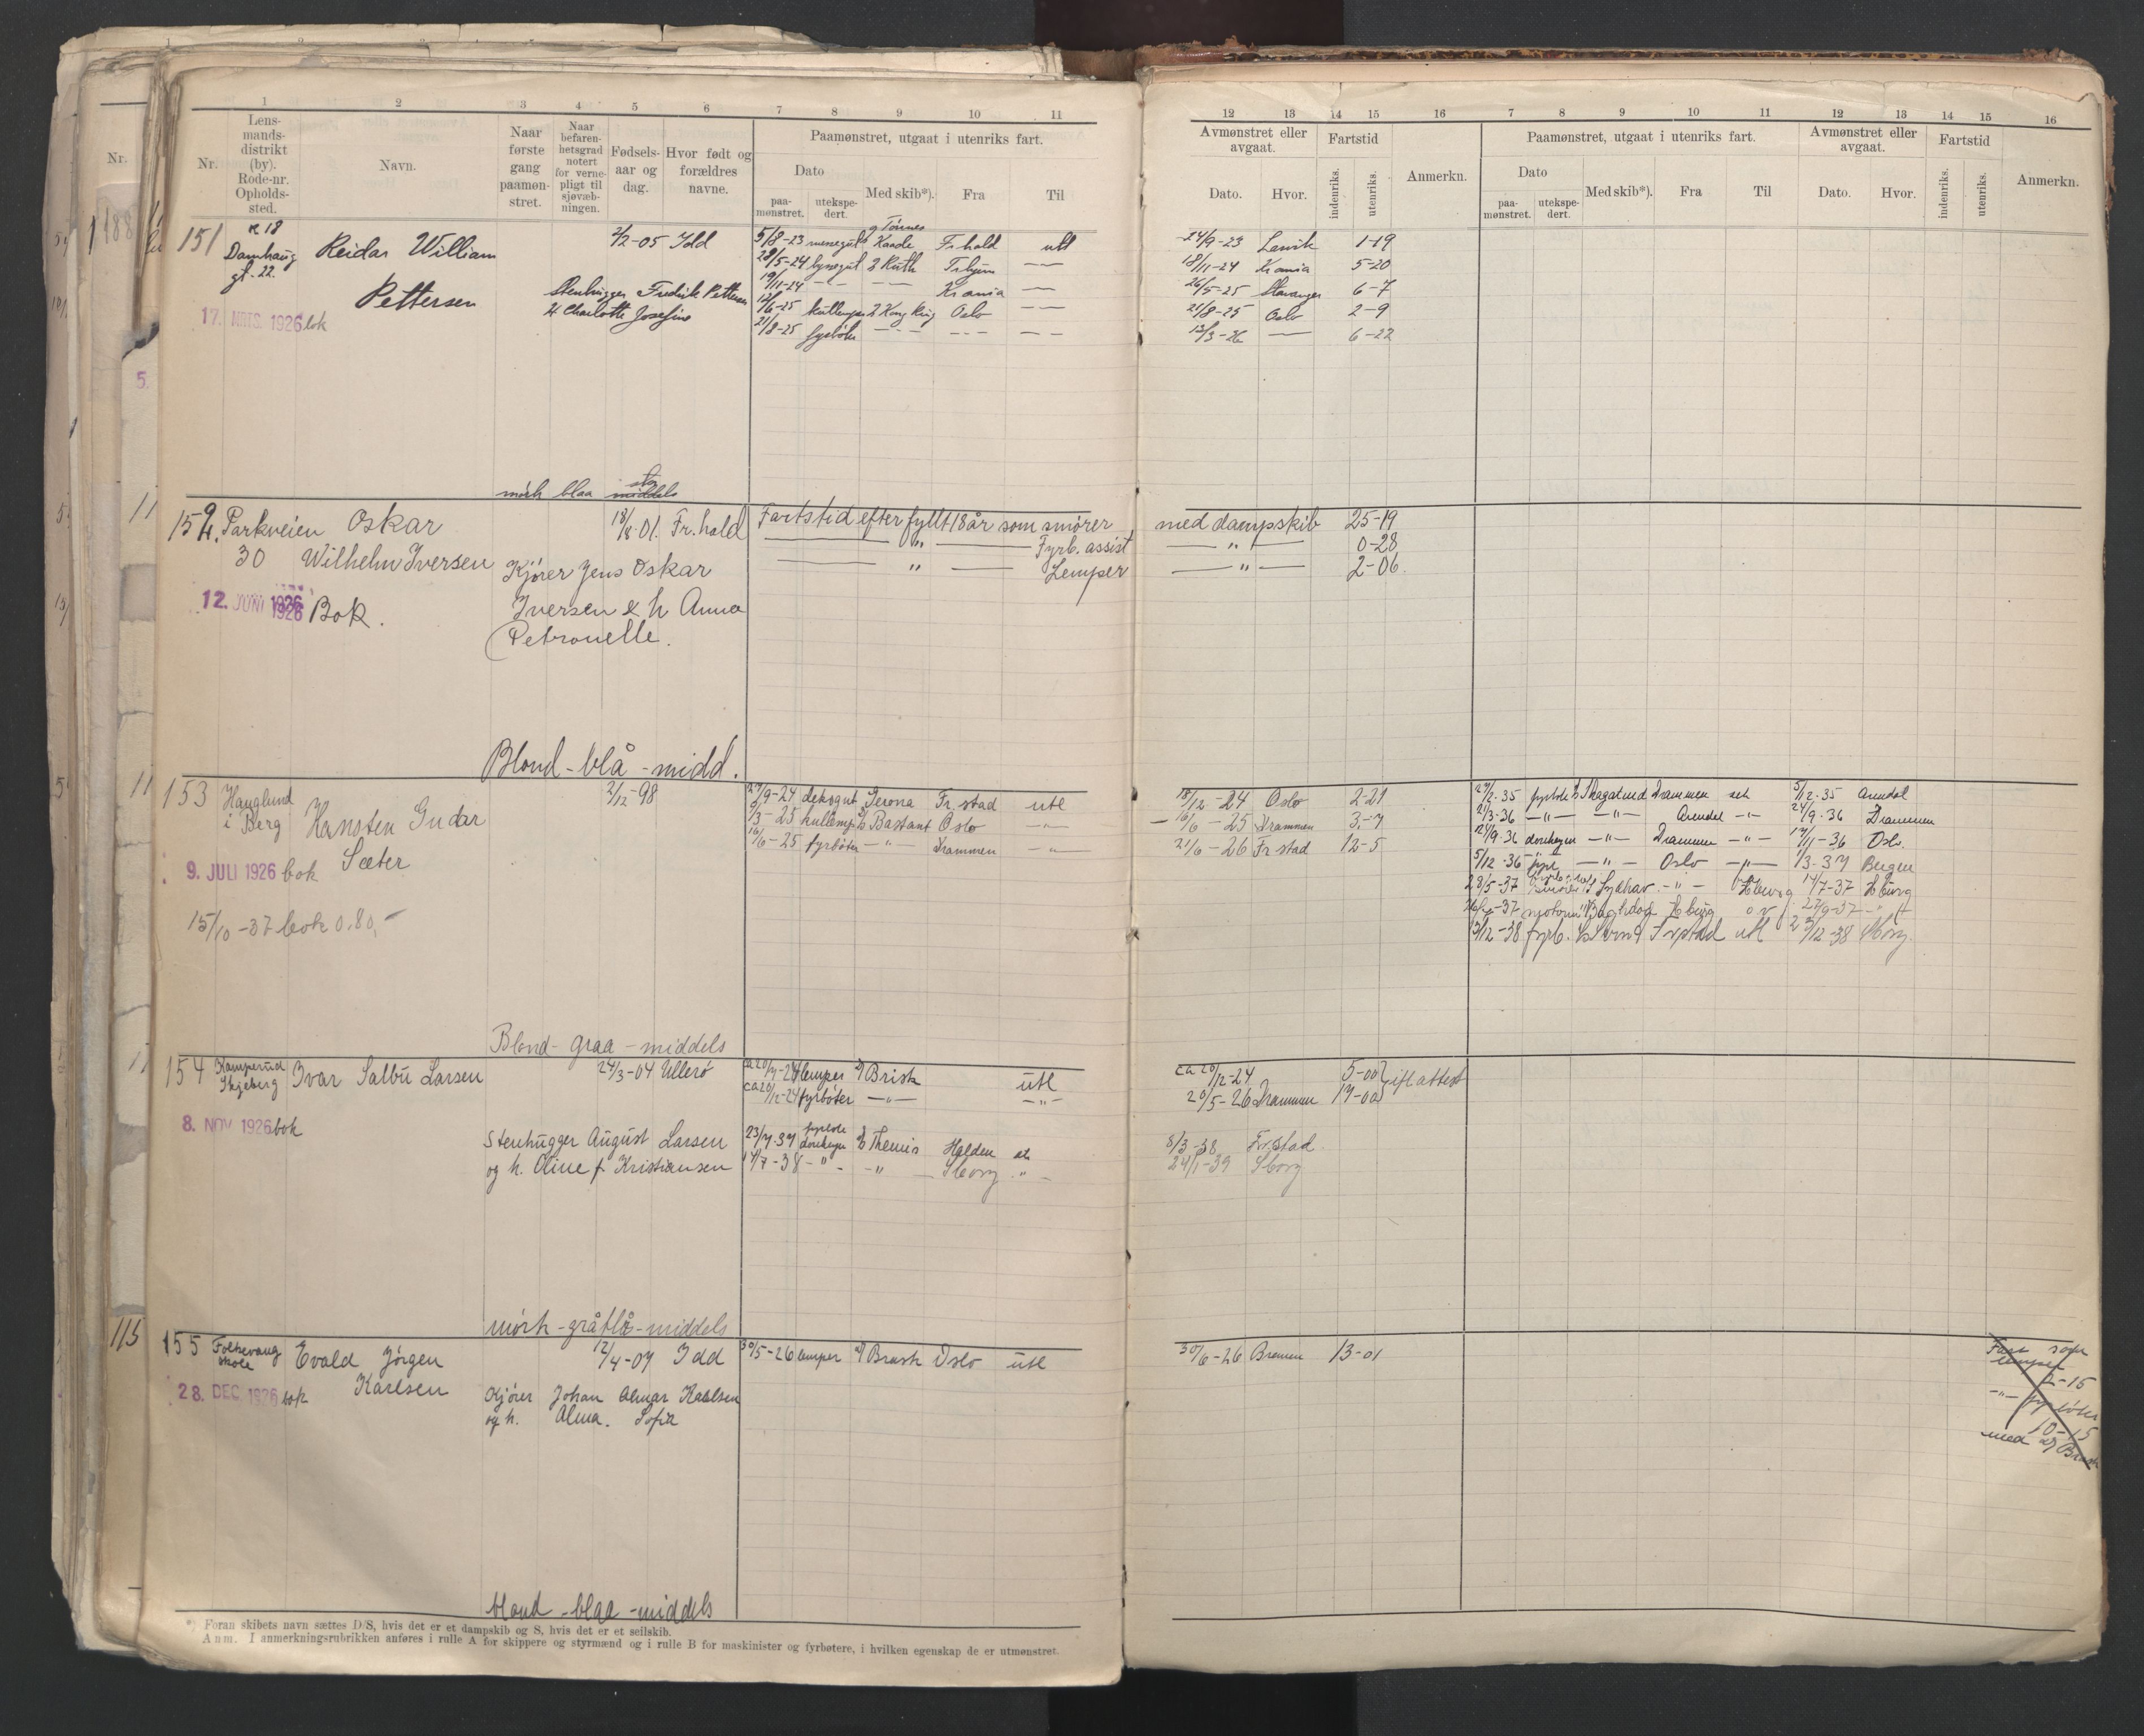 1 2 3 4 5 6 7 8 9 10 11
Nr.
Lens-
mands-
distrikt
(by).
Rode-nr.
Opholds-
sted.
Navn.
Naar
første
gang
paamøn-
stret.
Naar
befaren-
hetsgrad
notert
for verne-
pligt til
sjøvæb-
ningen.
Fødsels-
aar og
dag.
Hvor født og
forældres
navne.
Paamønstret, utgaat i utenriks fart.
Dato
paa-
mønstret.
utekspe-
dert.
Med skib*).
Fra
Til
151
Damhaug
gt. 22.
Reidar William
Pettersen
2/2-05 Idd
17. MRTS. 1926 bok
Stenhugger Fredrik Pettersen
Charlotte Josefine
5/8-23 Fr.hald utl
28/5-24 Ruth
19/11-24 Krania
12/6-25 Kong Ring Oslo
21/8-25 fyrbøter
mørk blaa middels
152. Parkveien Oskar 18/8-01. Fr.hald
30 Wilhelm Iversen
Kjører Jens Oskar
Iversen & h Anna
Petronelle.
12. JUNI 1926 Bok.
Fartstid efter fyllt 18 år som smører
— " — Fyrb. assist
— " — Lemper
Blond - blå - midd.
153 Hauglund
i Berg
Hansten Gudar
Sæter
2/12-98
9. JULI 1926 bok
15/10-37 bok 0.80,-
27/9-24 Gerona Fr.stad utl
1/3-25 kullemp. Bastant Oslo — " —
16/6-25 fyrbøter — " — Drammen — " —
Blond - graa - middels
154 Kamperud
Skjeberg
Ivar Salbu Larsen
24/3-04 Ullerø
8. NOV 1926 bok
Stenhugger August Larsen
og h. Oline f. Kristiansen
ca 20/7-24 lemper Brisk utl
ca 20/12-24 fyrbøter — " — — " —
23/7-37 fyrbøter donkeym. Themis Halden utl
14/7-38 - " - - " - Sborg - " -
mørk - gråblå - middels
155 Folkevang
skole
Evald Jørgen
Karlsen
12/4-07 Idd
28. DEC. 1926 bok
Kjører Johan Almar Karlsen
og h. Alma. Sofia
30/5-26 lemper Brask Oslo utl
blond - blaa - middels
*) Foran skibets navn sættes D/S, hvis det er et dampskib og S, hvis det er et seilskib.
Anm. I anmerkningsrubrikken anføres i rulle A for skippere og styrmænd og i rulle B for maskinister og fyrbøtere, i hvilken egenskap de er utmønstret.
12 13 14 15 16 7 8 9 10 11 12 13 14 15 16
Avmønstret eller
avgaat.
Dato.
Hvor.
Fartstid
indenriks.
utenriks.
Anmerkn.
Paamønstret, utgaat i utenriks fart.
Dato
paa-
mønstret.
utekspe-
dert.
Med skib*).
Fra
Til
Avmønstret eller
avgaat.
Dato.
Hvor.
Fartstid
indenriks.
utenriks.
Anmerkn.
24/9-23 Larvik 1-19
18/11-24 Krania 5-20
26/5-25 Stavanger 6-7
21/8-25 Oslo 2-9
13/3-26 — 6-22
med dampskib 25-19
— " — 0-28
— " — 2-06.
18/12-24 Oslo 2-21
16/6-25 Drammen 3-7
21/6-26 Fr.stad 12-5
29/2-35 fyrbøter Skagatind Drammen utl 5/12-35 Arendal
21/3-36 — " — — " — Arendal — " — 24/9-36 Drammen
24/9-36 donkeym — " — Drammen — " — 17/11-36 Oslo.
5/12-36 fyrb — " — Oslo — " — 1/3-37 Bergen
28/5-37 Sydhav - " - Hburg 14/7-37 Hburg
13/12-38 fyrb. Fr.stad utl 23/12-38 Sborg.
ca 20/12-24 5-00 } ifl attest
20/5-26 Drammen 17-00
8/3-38 Fr.stad
24/1-39 Sborg
30/6-26 Bremen 13-01
Fart som
lemper
2-15
— " — fyrbøter
10-15
med Brask